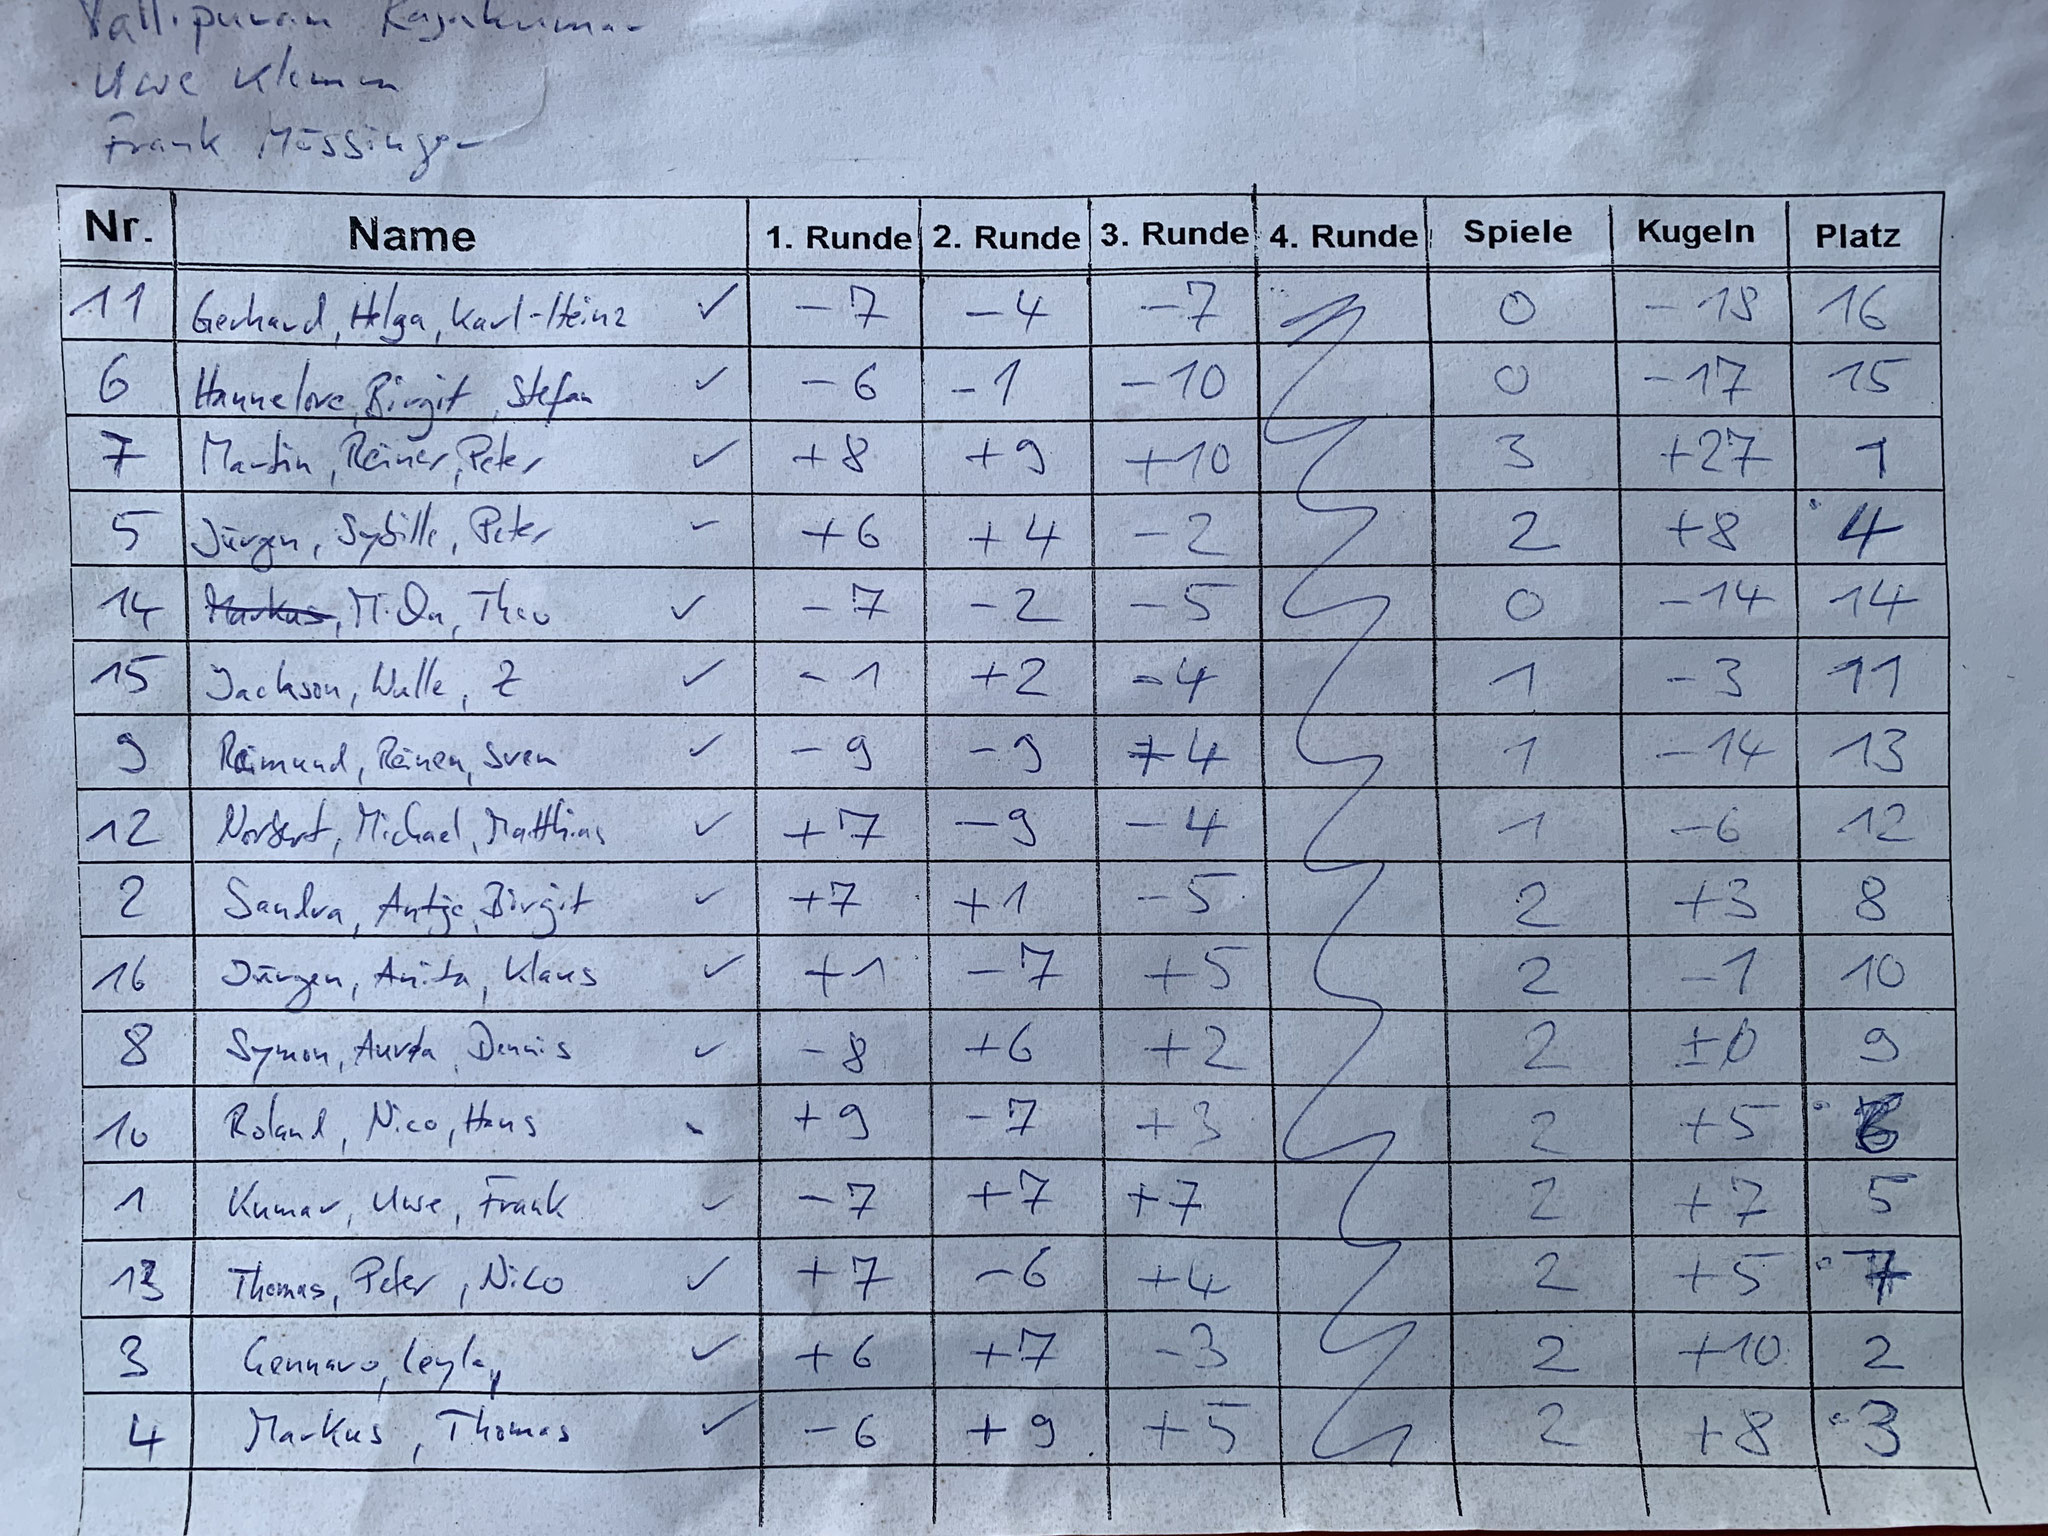 Vallipuram Rajakumar
Uwe Klemm
Frank Mössinger
Nr. Name 1. Runde 2. Runde 3. Runde 4. Runde Spiele Kugeln Platz
11 Gerhard, Helga, Karl-Heinz ✓ -7 -4 -7 0 -18 16
6 Hannelore, Birgit, Stefan ✓ -6 -1 -10 0 -17 15
7 Martin, Reiner, Peter ✓ +8 +9 +10 3 +27 1
5 Jürgen, Sybille, Peter ✓ +6 +4 -2 2 +8 4
14 Markus, Theo ✓ -7 -2 -5 0 -14 14
15 Jackson, Walle, Z ✓ -1 +2 -4 1 -3 11
9 Raimund, Rainer, Sven ✓ -9 -9 +4 1 -14 13
12 Norbert, Michael, Matthias ✓ +7 -9 -4 1 -6 12
2 Sandra, Antje, Birgit ✓ +7 +1 -5 2 +3 8
16 Jürgen, Anita, Klaus ✓ +1 -7 +5 2 -1 10
8 Symon, Dennis ✓ -8 +6 +2 2 ±0 9
10 Roland, Nico, Hans +9 -7 +3 2 +5 6
1 Kumar, Uwe, Frank ✓ -7 +7 +7 2 +7 5
13 Thomas, Peter, Nico ✓ +7 -6 +4 2 +5 7
3 Gennaro, Leyla, ✓ +6 +7 -3 2 +10 2
4 Markus, Thomas ✓ -6 +9 +5 2 +8 3